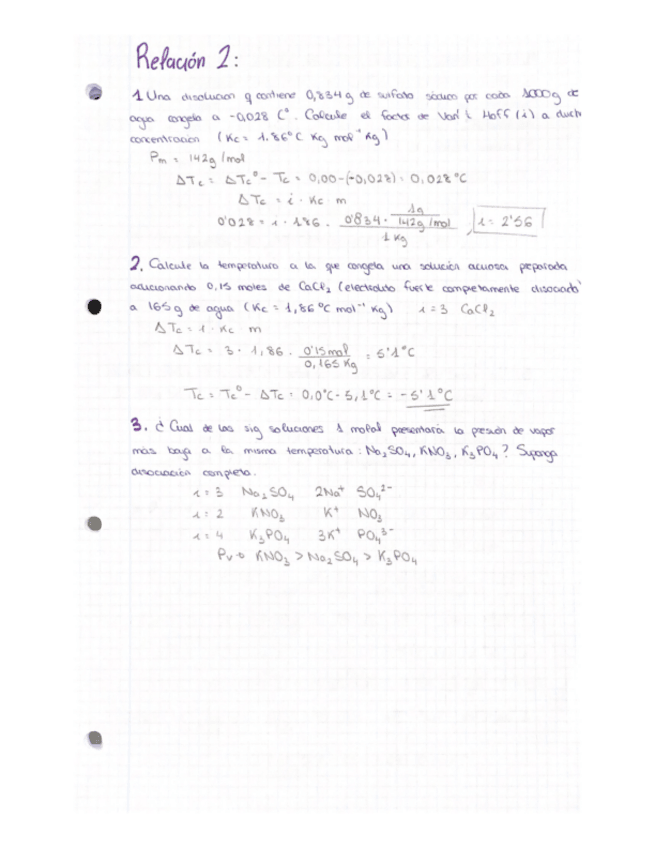 Relación 2:
1 Una disolucion q contiene 0,834g de sulfato sódico por cada 1000g de
agua congela a -0,028 Cº. Calcule el factor de Van't Hoff (i) a dich
concentración (Kc = 1,86ºC Kg mol⁻¹ Kg)
Pm = 142g/mol
ΔTc = ΔTcº - Tc = 0,00-(-0,028) = 0,028ºC
ΔTc = i · Kc m
0'028 = i · 1.86 · 0'834 · 1g / 142g/mol / 1 Kg , i = 2'56
2. Calcule la temperatura a la que congela una solución acuosa preparada
adicionando 0,15 moles de CaCl₂ (electrolito fuerte completamente disociado)
a 165g de agua (Kc = 1,86ºC mol⁻¹ Kg) i=3 CaCl₂
ΔTc = i · Kc m
ΔTc = 3 · 1,86 · 0'15mol / 0,165 Kg = 5'1ºC
Tc = Tcº - ΔTc = 0,0ºC - 5,1ºC = -5'1ºC
3. ¿Cual de las sig soluciones 1 molal presentará la presión de vapor
más baja a la misma temperatura: Na₂SO₄, KNO₃, K₃PO₄? Suponga
disociación completa.
i = 3 Na₂SO₄ 2Na⁺ SO₄²⁻
i = 2 KNO₃ K⁺ NO₃
i = 4 K₃PO₄ 3K⁺ PO₄³⁻
Pv→ KNO₃ > Na₂SO₄ > K₃PO₄